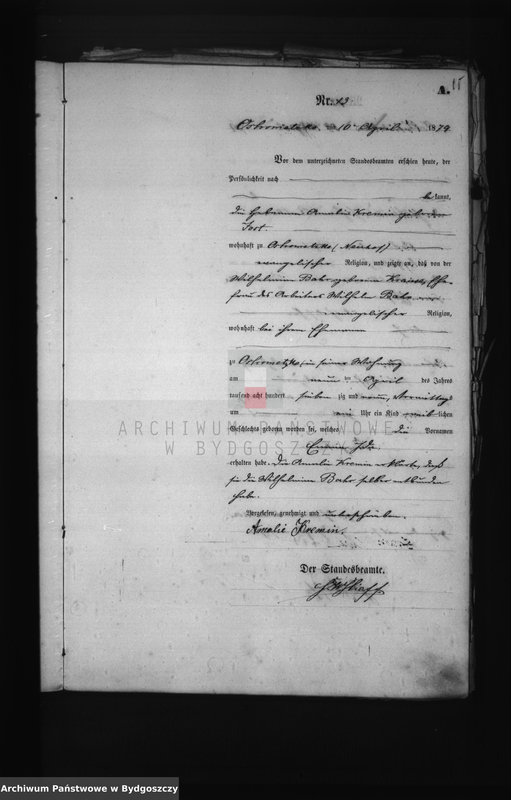 A.
15
Nr. 13
Ostrometzko, am 10. April 1879
Vor dem unterzeichneten Standesbeamten erschien heute, der
Persönlichkeit nach
bekannt,
die Hebamme Amalie Kremin geb.
wohnhaft zu Ostrometzko (Neuhof)
evangelischer Religion, und zeigte an, daß von der
Wilhelmine Bahr geborene Krause, Ehe
frau des Arbeiters Wilhelm Bahr
evangelischer Religion,
wohnhaft bei ihrem Ehemanne
zu Ostrometzko in seiner Wohnung
am neunten April des Jahres
tausend acht hundert siebenzig und neun, Vormittags
um ein Uhr ein Kind weiblichen
Geschlechts geboren worden sei, welches die Vornamen
Ida
erhalten habe. Die Amalie Kremin erklärte, daß
sie die Wilhelmine Bahr selber entbunden
habe.
Vorgelesen, genehmigt und unterschrieben.
Amalie Kremin.
Der Standesbeamte.
ARCHIWUM PAŃSTWOWE
W BYDGOSZCZY
Archiwum Państwowe w Bydgoszczy